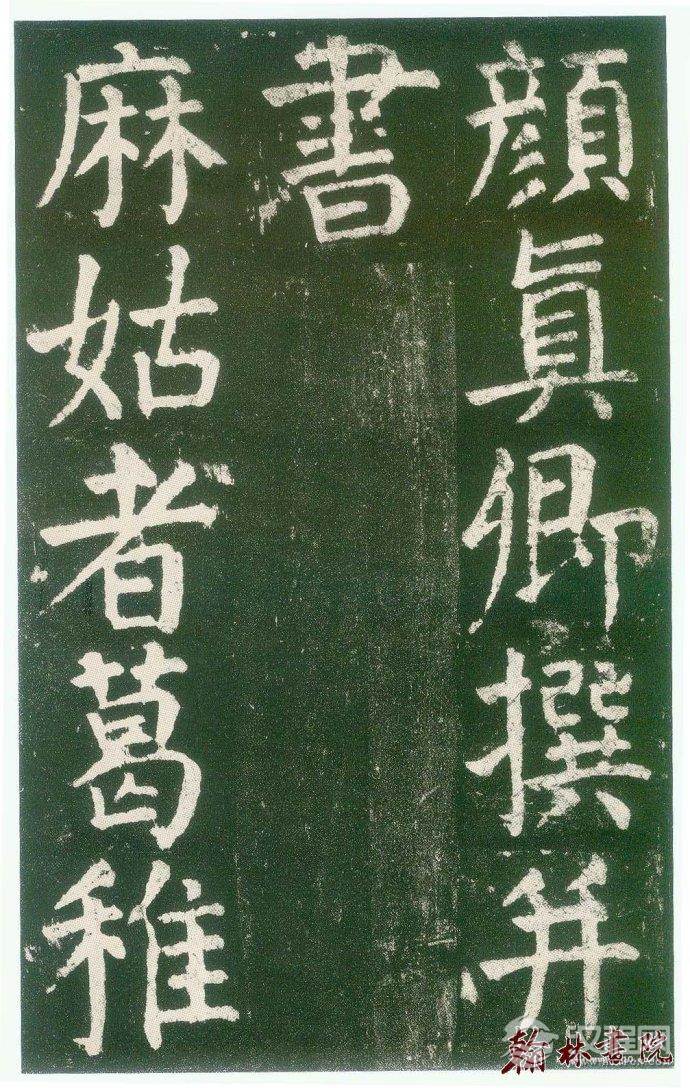 顔真卿撰并
書
麻姑者葛稚
翰林書院